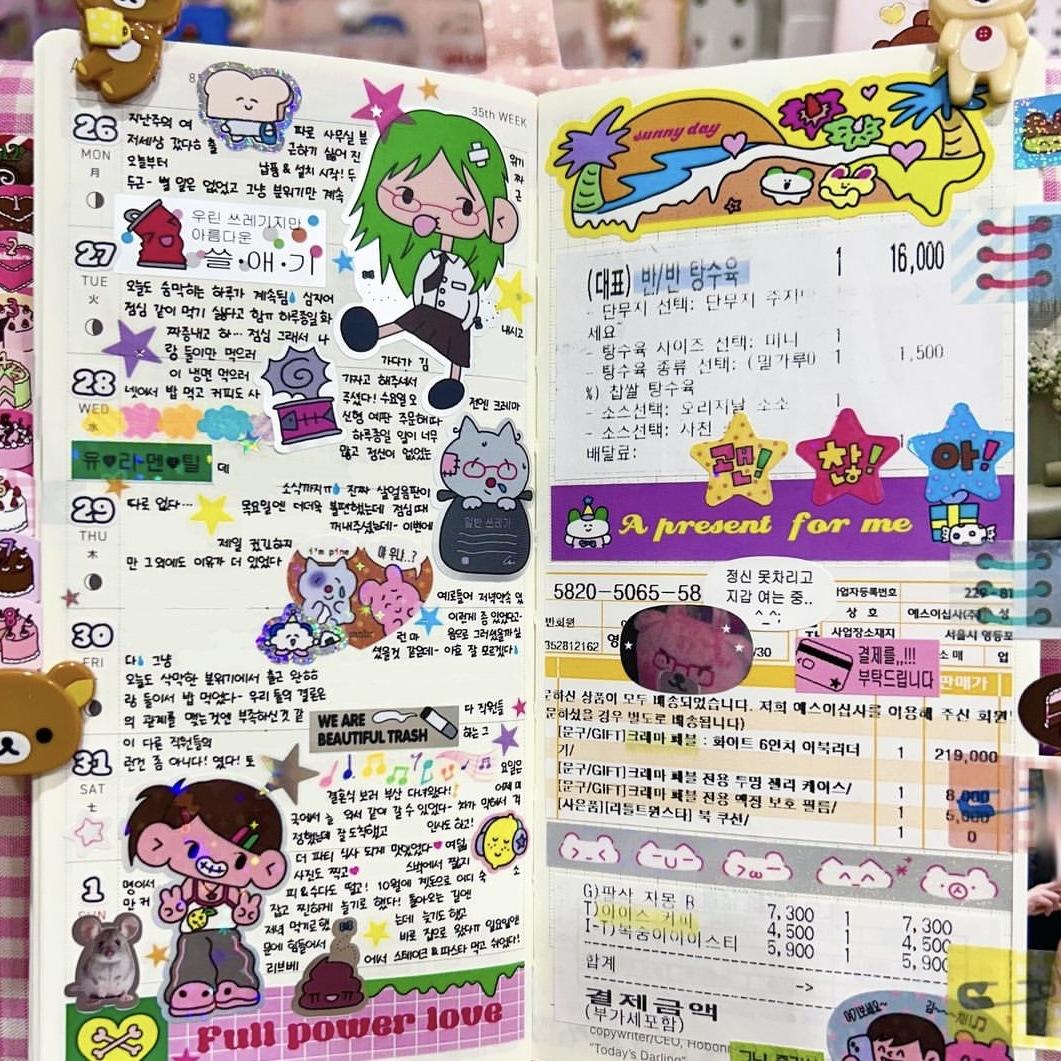 35th WEEK
26
MON
月
지난주의 여
파로 사무실 분
저세상 갔다하 출
근하기 싫어 진
오늘부터
납품 & 설치 시작! 두
두근- 별 일은 없었고 그냥 분위기만 계속
우린 쓰레기지만
아름다운
쓸·애·기
27
TUE
火
오늘도 숨막히는 하루가 계속됨 심지어
점심 같이 먹기 싫다고 함ㅠ 하루종일 화
짜증내고 하… 점심 그래서 나
랑 둘이만 먹으러
내시고
가다가 김
28
WED
水
이 냉면 먹으러
가자고 해주셔서
넷이서 밥 먹고 커피도 사
주셨다! 수요일 오
전엔 크레마
신형 예판 주문해따
하루종일 일이 너무
많고 정신이 없었는
유♥라멘♥틸
데
29
THU
木
소식까지ㅠ 진짜 살얼음판이
다로 없다…
목요일엔 더더욱 불편했는데 점심 때
꺼내주셨는데- 이번에
제일 컸긴하지
만 그외에도 이유가 더 있었다
일반 쓰레기
i'm pine
야 위나..?
예로들어 저녁약속 있
이런게 좀 있었다-
30
FRI
런 마
음으로 그러셨을까 싶
셨을 것 같은데- 아효 잘 모르겠다
다 그냥
오늘도 삭막한 분위기에서 출근 완ㅎㅎ
랑 둘이서 밥 먹었다- 우리 둘의 결론은
의 관계를 맺는것엔 부족하신 것 같
다 직원들
WE ARE
BEAUTIFUL TRASH
하는 그
31
SAT
土
이 다른 직원들의
런건 좀 아니다! 였다! 토
요일은
결혼식 보러 부산 다녀왔다!
국어서 늘 와서 같이 갈 수 있었다- 차가 막혀서 걱
정했는데 잘 도착했고
인사도 하고!
더 파티 식사 되게 맛있었다♥ 여덟
사진도 찍고♥
스벅에서 찔지
1
SUN
명이서
만 커
피 & 수다도 떨고! 10월에 계돈으로 어디 숙
소
잡고 찐하게 놀기로 했다! 돌아오는 길엔
저녁 먹기로 했
는데 늦기도 하고
문에 힘들어서
바로 집으로 왔다!! 일요일엔
리브베
에서 스테이크 & 파스타 먹고 쉬었다!
Full power love
sunny day
(대표) 반/반 탕수육 1 16,000
- 단무지 선택: 단무지 주지
세요
- 탕수육 사이즈 선택: 미니 1
- 탕수육 종류 선택: (밀가루 1 1,500
%) 찹쌀 탕수육
- 소스선택: 오리지널 소스 1
- 소스선택: 사천
배달료:
괜! 찮! 아!
A present for me
정신 못차리고
지갑 여는 중..
^_^
5820-5065-58
사업자등록번호 229-81
상 호 예스이십사(주) 성
사업장소재지 서울시 영등포
352812162
/30
소 매 업
결제를,,!!!
부탁드립니다
판매가
하신 상품이 모두 배송되었습니다. 저희 예스이십사를 이용해 주신 회원
문하셨을 경우 별도로 배송됩니다)
[문구/GIFT]크레마 페블 : 화이트 6인치 이북리더 1 219,000
기/
[문구/GIFT]크레마 페블 전용 투명 젤리 케이스/ 1 8,000
[문구/GIFT]크레마 페블 전용 액정 보호 필름/ 1 5,000
[사은품][리틀트윈스타] 북 쿠션/ 1 0
G)판사 자몽 B 7,300 1 7,300
T)아이스 커피 4,500 1 4,500
I-T)복숭아아이스티 5,900 1 5,900
합계 ->
결제금액
(부가세포함)
copywriter/CEO, Hobonichi
"Today's Darling"